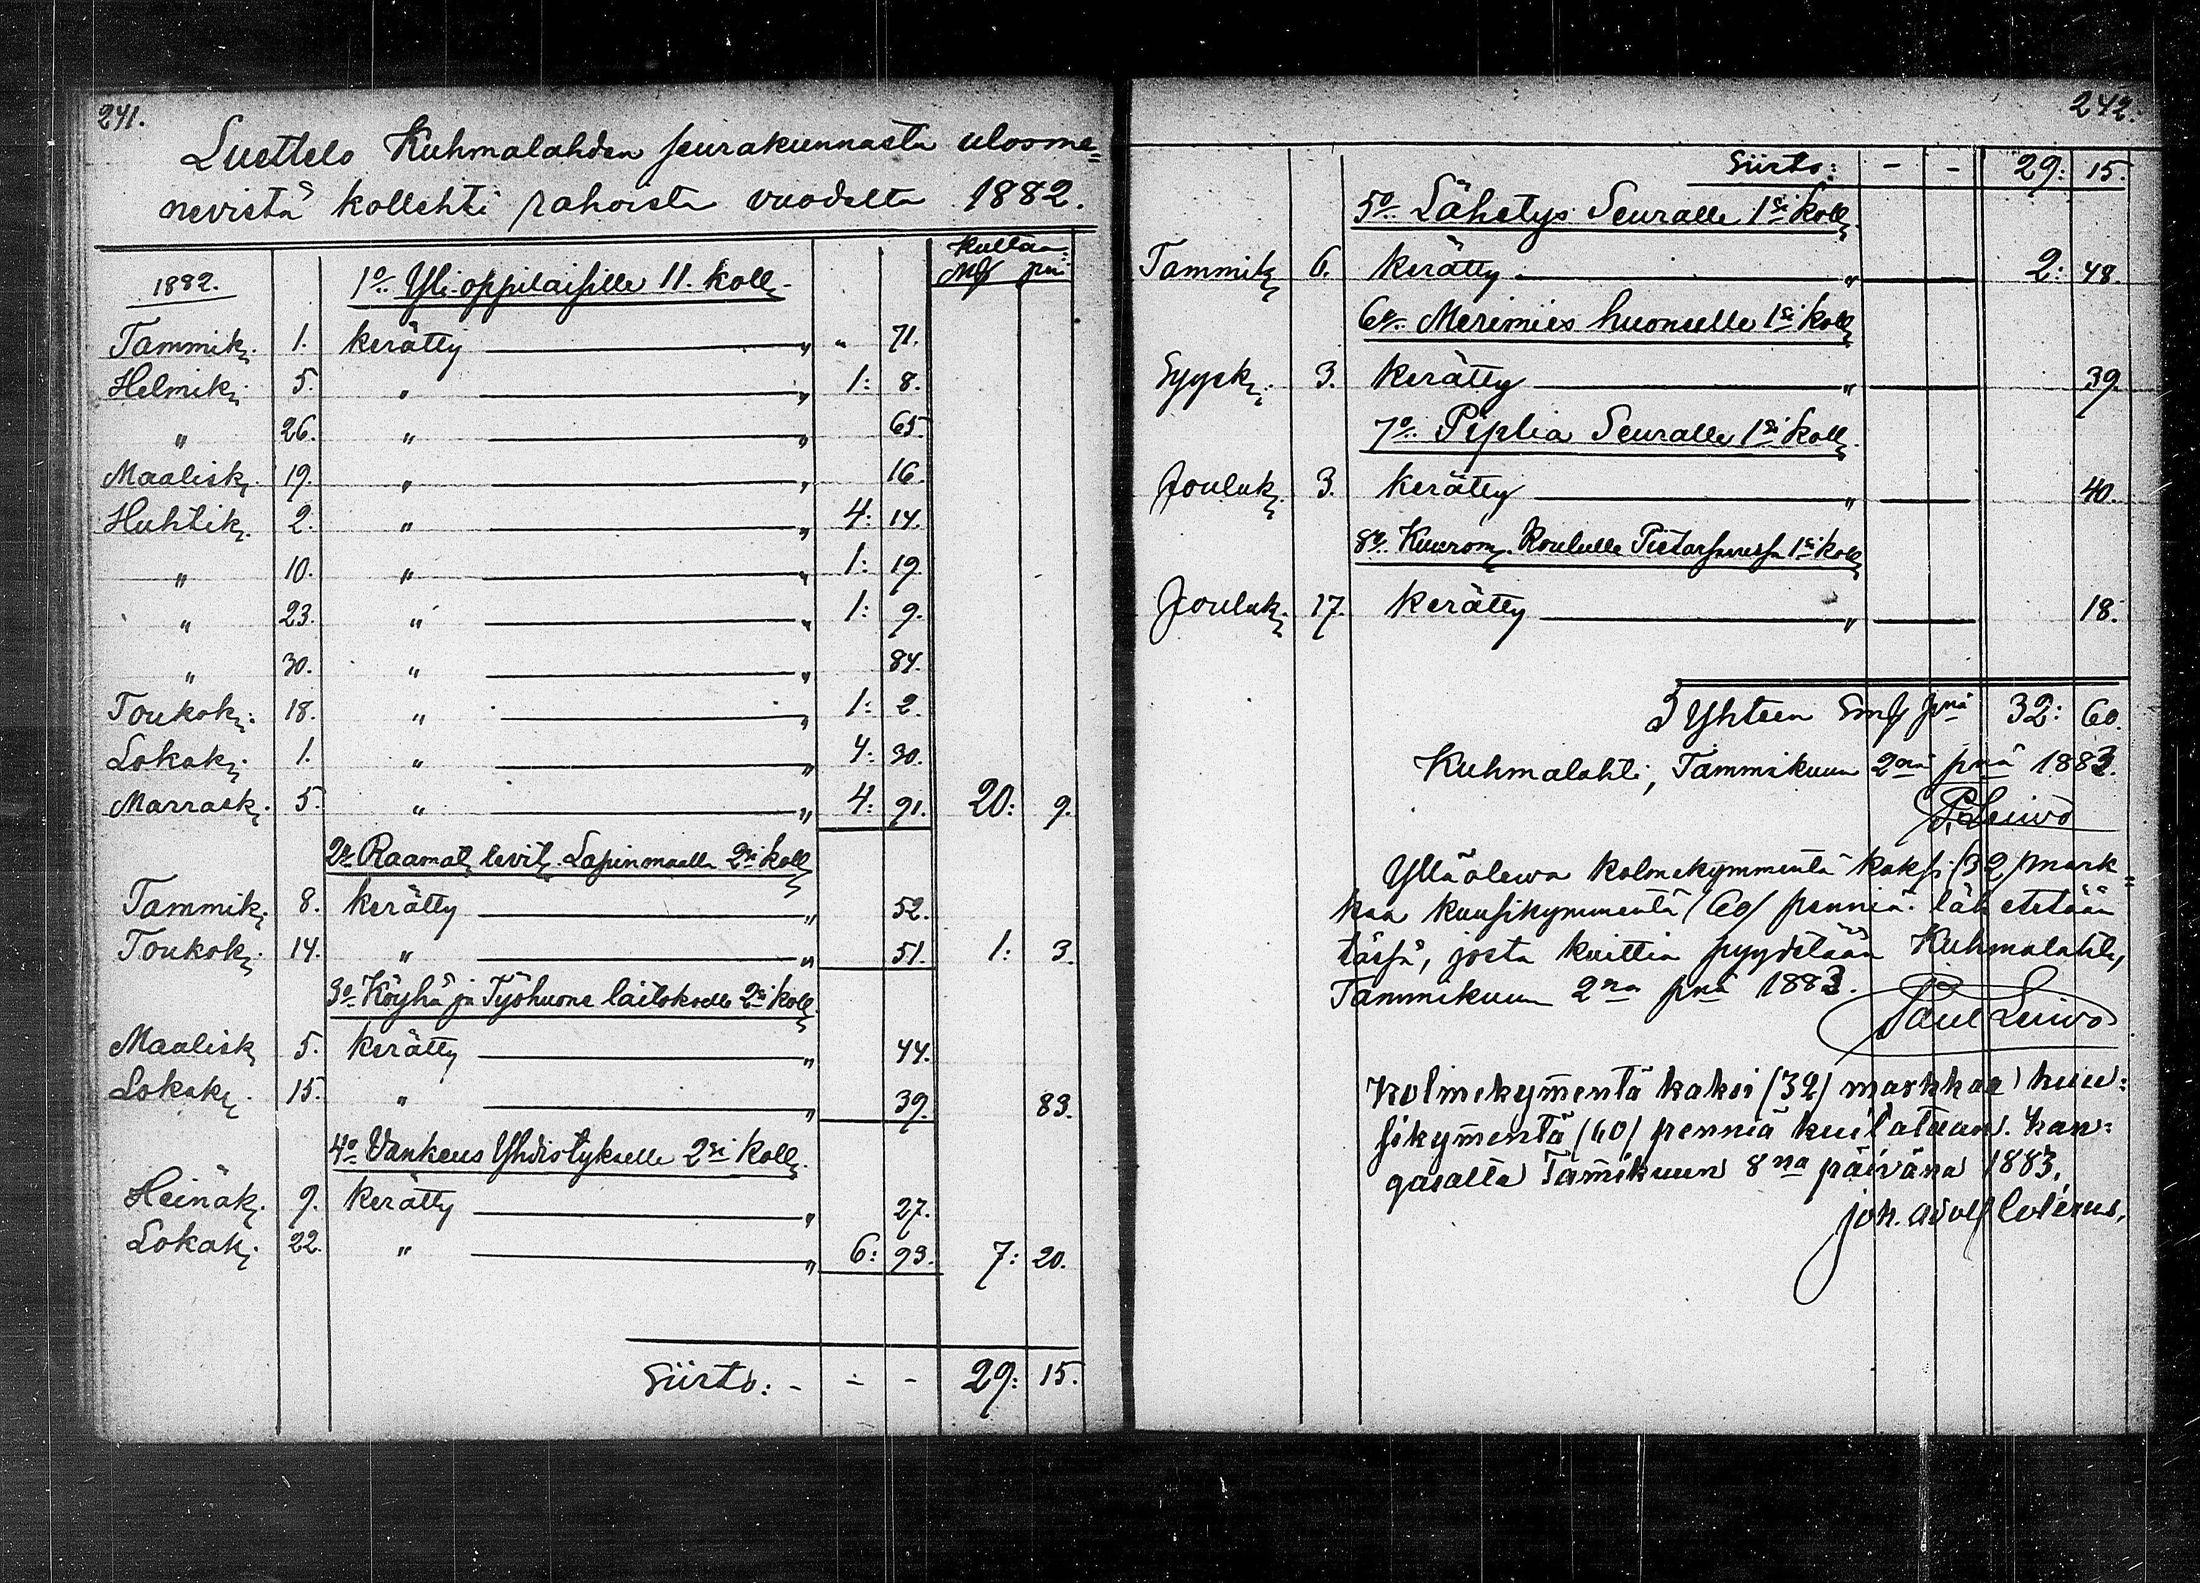 241.
Luettelo Kuhmalahden seurakunnasta ulosme=
nevistä kollehti rahoista vuodelta 1882.
Kultaa:
Mk pni
1882. 1o Yli-oppilaisille 11. koll.
Tammik. 1. kerätty " " 71.
Helmik. 5. " " 1: 8.
" 26. " " 65.
Maalisk. 19. " " 16.
Huhtik. 2. " " 4: 14.
" 10. " " 1: 19.
" 23. " " 1: 9.
" 30. " " 84.
Toukok. 18. " " 1: 2.
Lokak. 1. " " 4: 30.
Marrask. 5. " " 4: 91. 20: 9.
2o Raamat. levit. Lapinmaalla 2si koll.
Tammik. 8. kerätty " 52.
Toukok. 14. " " 51. 1: 3.
3o Köyhä ja Työhuone laitokselle 2si koll.
Maalisk. 5. kerätty " 44.
Lokak. 15. " " 39. 83.
4o Vankeus Yhdistykselle 2si koll.
Heinäk. 9. kerätty " 27.
Lokak. 22. " " 6: 93. 7: 20.
Siirto: - - - 29: 15.
242.
Siirto: - - 29: 15.
5o Lähetys Seuralle 1si koll.
Tammik. 6. kerätty " 2: 48.
6o Merimies huoneelle 1si koll.
Syysk. 3. kerätty " 39.
7o Piplia Seuralle 1si koll.
Jouluk. 3. kerätty " 40.
8o Kuurom. Koululle Pietarsaaressa 1si koll.
Jouluk. 17. kerätty " 18.
Yhteen Smk pniä 32: 60.
Kuhmalahti, Tammikuun 2na pnä 1883.
P. Leivo
Ylläolewa kolmekymmentä kaksi (32) mark=
kaa kuusikymmentä (60) penniä lähetetään
tässä, josta kuittia pyydetään Kuhmalahti,
Tammikuun 2na pnä 1883.
Paul Leivo
Kolmekym̄entä kaksi (32) markkaa kuu=
sikym̄entä (60) penniä kuitataan. Kan=
gasalta Tam̄ikuun 8na päivänä 1883,
Joh. Adolf